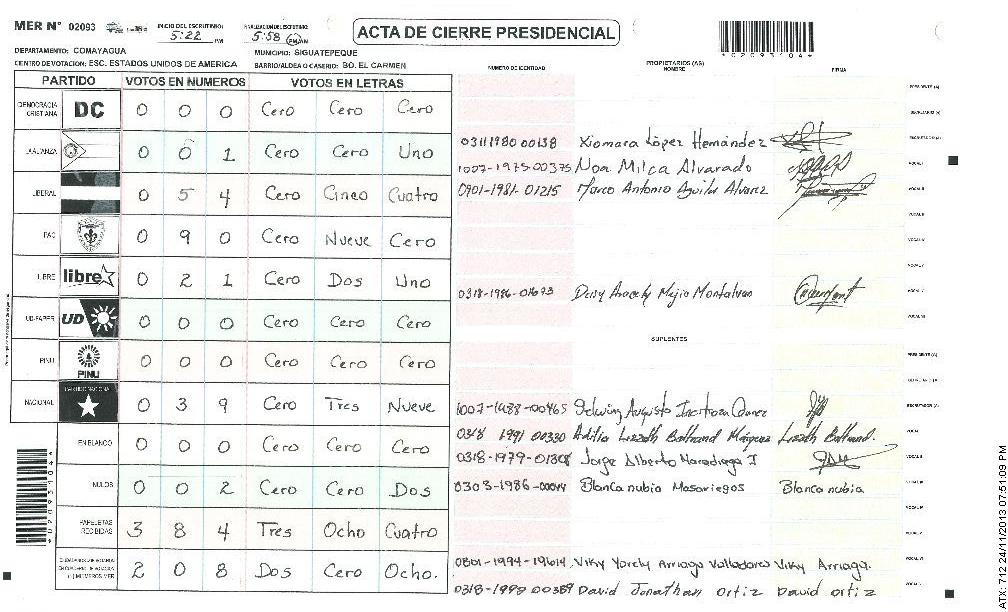 MER N° 02093 INICIO DEL ESCRUTINIO: 5:22 PM FINALIZACION DEL ESCRUTINIO: 5:58 PM/AM
ACTA DE CIERRE PRESIDENCIAL
*02093104*
DEPARTAMENTO: COMAYAGUA MUNICIPIO: SIGUATEPEQUE
CENTRO DE VOTACION: ESC. ESTADOS UNIDOS DE AMERICA BARRIO/ALDEA O CASERIO: BO. EL CARMEN
NUMERO DE IDENTIDAD PROPIETARIOS (AS) NOMBRE FIRMA
PARTIDO VOTOS EN NUMEROS VOTOS EN LETRAS
DEMOCRACIA CRISTIANA DC 0 0 0 Cero Cero Cero
ALIANZA 0 0 1 Cero Cero Uno
LIBERAL 0 5 4 Cero Cinco Cuatro
PAC 0 9 0 Cero Nueve Cero
LIBRE libre 0 2 1 Cero Dos Uno
UD-FAPER UD 0 0 0 Cero Cero Cero
PINU PINU 0 0 0 Cero Cero Cero
NACIONAL PARTIDO NACIONAL 0 3 9 Cero Tres Nueve
EN BLANCO 0 0 0 Cero Cero Cero
NULOS 0 0 2 Cero Cero Dos
PAPELETAS RECIBIDAS 3 8 4 Tres Ocho Cuatro
2 0 8 Dos Cero Ocho.
PRESIDENTE (A)
SECRETARIO (A)
0311 1980 00138 Xiomara López Hernández ESCRUTADOR (A)
1007-1975-00375 Noa Milca Alvarado VOCAL I
0901-1981-01215 Marco Antonio Aguilar Alvarez VOCAL II
0318-1986-01673 Deisy Aracely Mejia Montalvan
SUPLENTES
PRESIDENTE (A)
SECRETARIO (A)
1007-1988-00465 Augusto ESCRUTADOR (A)
0318 1991 00330 Lizzeth Lizzeth
0318-1979-01308 Jorge Alberto
0303-1986-00044 Blanca nubia Mosariegos Blanca nubia
0801-1994-19614 Viky Yorely Arriaga Valladares Viky Arriaga.
David Jonathan Ortiz David ortiz
*02093104*
ATX 712 24/11/2013 07:51:09 PM